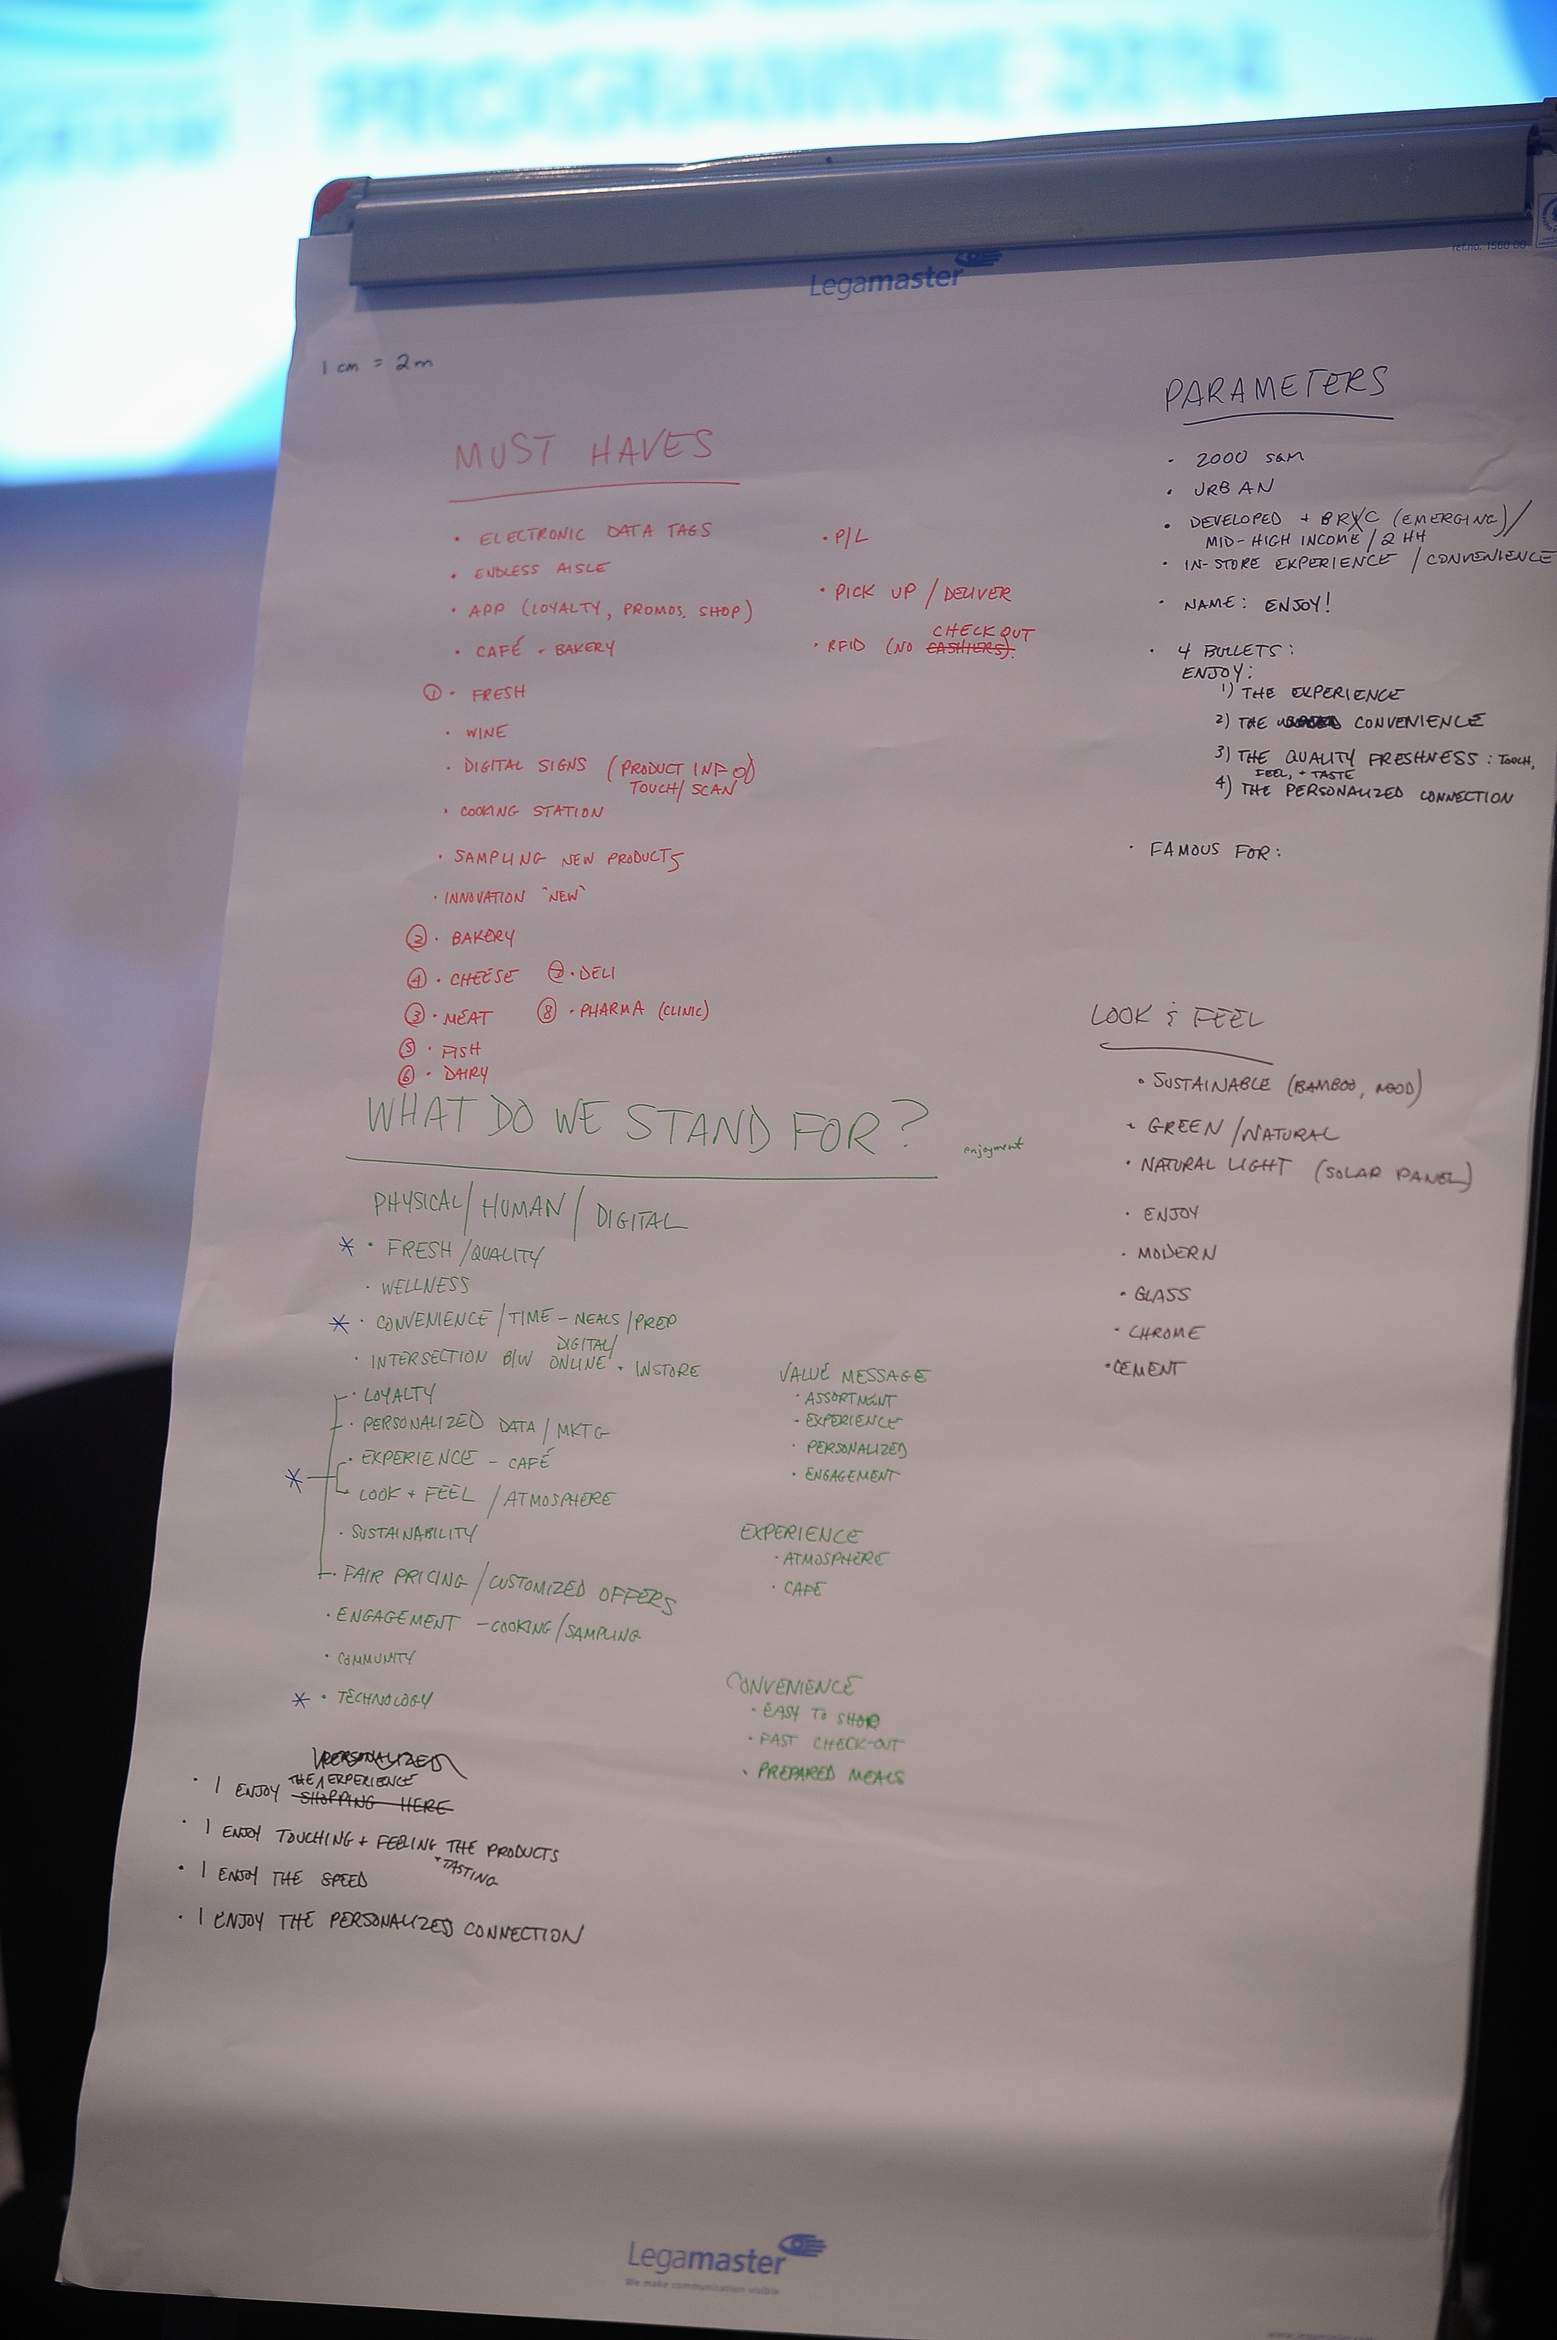 Legamaster
ref.no. 1560 00
1 cm = 2m
MUST HAVES
• ELECTRONIC DATA TAGS
• ENDLESS AISLE
• APP (LOYALTY, PROMOS, SHOP)
• CAFÉ + BAKERY
① • FRESH
• WINE
• DIGITAL SIGNS (PRODUCT INFO)
TOUCH/SCAN
• COOKING STATION
• SAMPLING NEW PRODUCTS
• INNOVATION "NEW"
② • BAKERY
④ • CHEESE ⑦ • DELI
③ • MEAT ⑧ • PHARMA (CLINIC)
⑤ • FISH
⑥ • DAIRY
• P/L
• PICK UP / DELIVER
CHECK OUT
• RFID (NO CASHIERS).
PARAMETERS
• 2000 SQM
• URBAN
• DEVELOPED + BRXC (EMERGING)/
MID-HIGH INCOME/2 HH
• IN-STORE EXPERIENCE / CONVENIENCE
• NAME: ENJOY!
• 4 BULLETS:
ENJOY:
1) THE EXPERIENCE
2) THE CONVENIENCE
3) THE QUALITY FRESHNESS: TOUCH,
FEEL, + TASTE
4) THE PERSONALIZED CONNECTION
• FAMOUS FOR:
LOOK & FEEL
• SUSTAINABLE (BAMBOO, WOOD)
• GREEN/NATURAL
• NATURAL LIGHT (SOLAR PANEL)
• ENJOY
• MODERN
• GLASS
• CHROME
• CEMENT
WHAT DO WE STAND FOR?
enjoyment
PHYSICAL/HUMAN/DIGITAL
* • FRESH/QUALITY
• WELLNESS
* • CONVENIENCE/TIME - MEALS/PREP
DIGITAL/
• INTERSECTION B/W ONLINE + INSTORE
• LOYALTY
• PERSONALIZED DATA/MKTG
• EXPERIENCE - CAFÉ
* • LOOK + FEEL /ATMOSPHERE
• SUSTAINABILITY
• FAIR PRICING/CUSTOMIZED OFFERS
• ENGAGEMENT - COOKING/SAMPLING
• COMMUNITY
* • TECHNOLOGY
VALUE MESSAGE
• ASSORTMENT
- EXPERIENCE
• PERSONALIZED
• ENGAGEMENT
EXPERIENCE
• ATMOSPHERE
• CAFE
CONVENIENCE
• EASY TO SHOP
• FAST CHECK-OUT
• PREPARED MEALS
PERSONALIZED
THE EXPERIENCE
• I ENJOY SHOPPING HERE
• I ENJOY TOUCHING + FEELING THE PRODUCTS
+ TASTING
• I ENJOY THE SPEED
• I ENJOY THE PERSONALIZED CONNECTION
Legamaster
We make communication visible